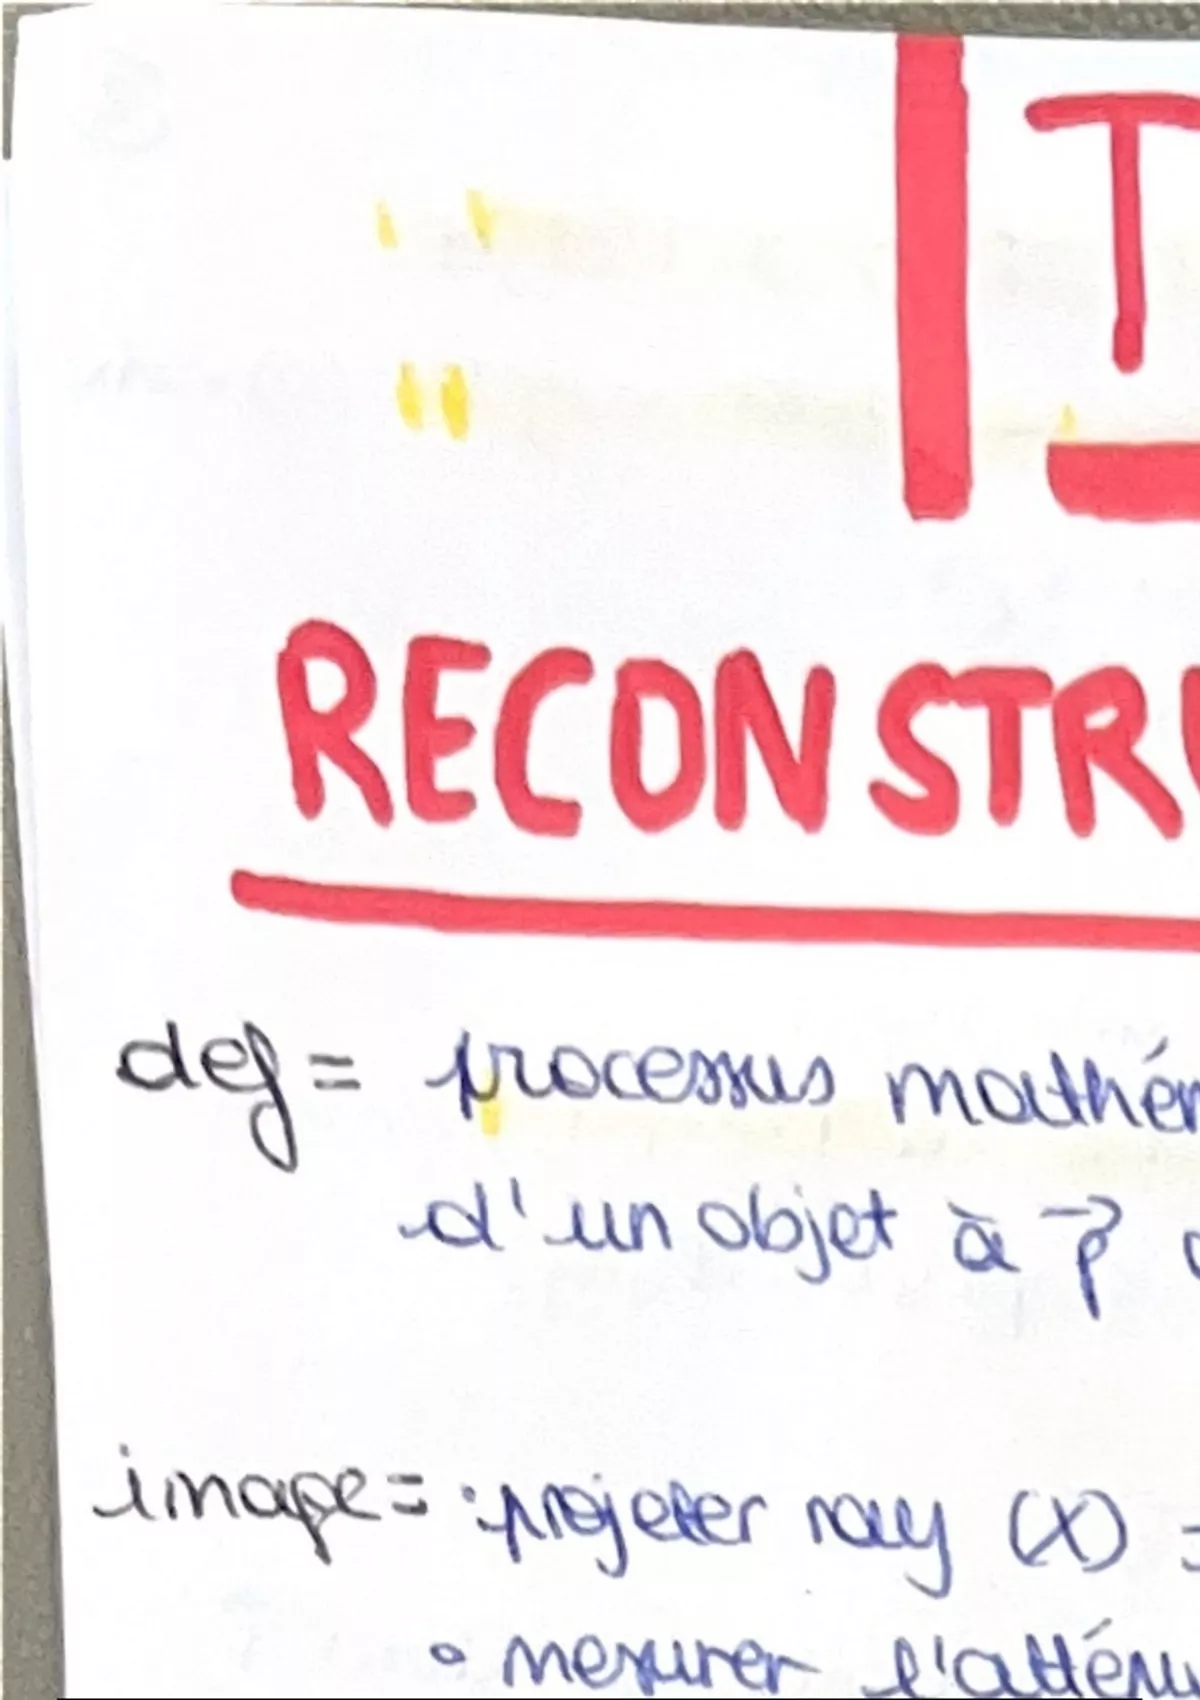 T
RECONSTRU
def = processus mathém
d'un objet à p⃗
image = • projeter ray (X) =
• mesurer l'atténu